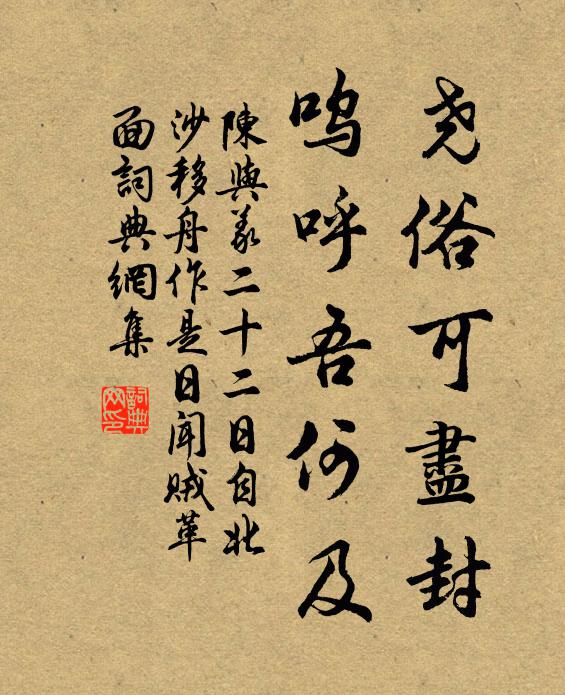 尧俗可盡封
嗚呼吾何及
陳與義二十二日自北
沙移舟作是日聞賊革
面詞典網集
詞典
网印